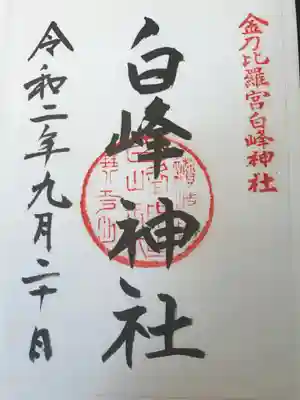 金刀比羅宮白峰神社
白峰神社
令和二年九月二十日